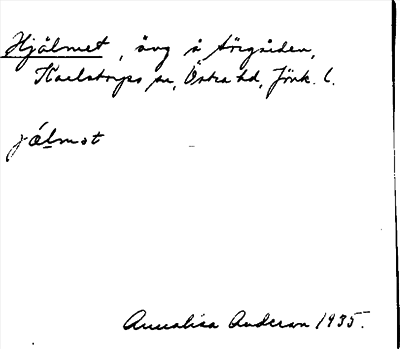 Hjälmet, äng å Ärgsiden,
Karlstorps sn, Östra hd, Jönk. l.
jälmət
Annalisa Anderson 1935.